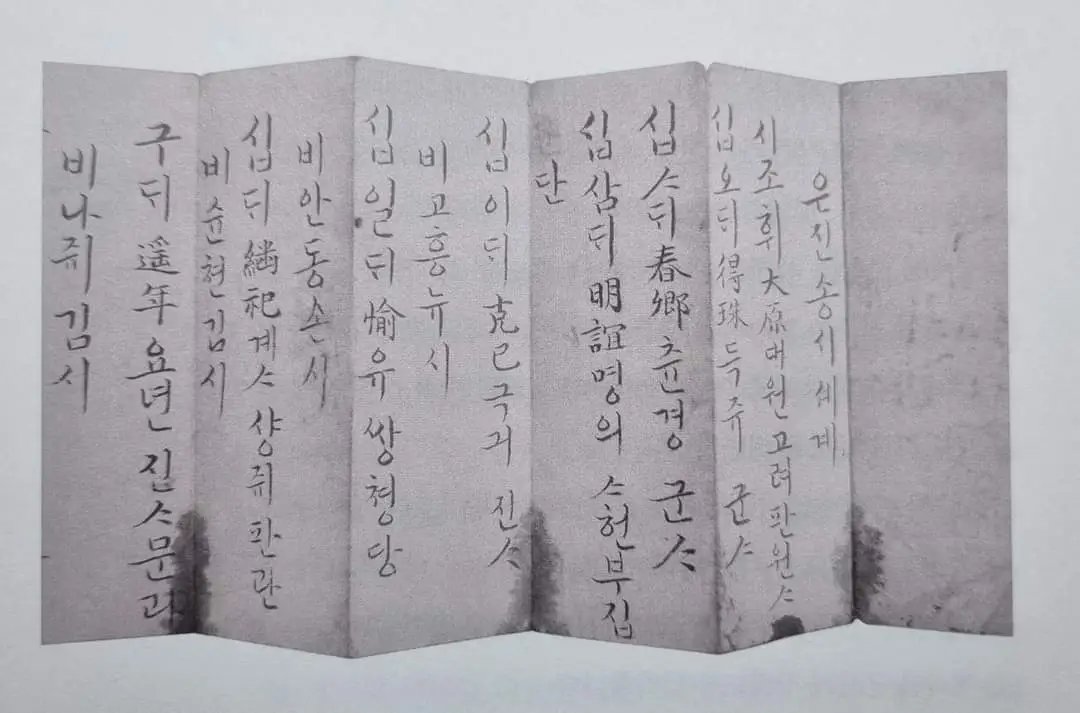 은진송시세계
시조휘大原대원고려판원ᄉᆞ
십오ᄃᆡ得珠득쥬 군ᄉᆞ
십ᄉᆞᄃᆡ春鄕츈경 군ᄉᆞ
십삼ᄃᆡ明誼명의 ᄉᆞ헌부집
단
십이ᄃᆡ克己극긔 진ᄉᆞ
비고흥뉴시
십일ᄃᆡ愉유 쌍쳥당
비안동손시
십ᄃᆡ繼祀계ᄉᆞ 샹쥐판관
비슌쳔김시
구ᄃᆡ遥年요년 진ᄉᆞ문과
비나쥐김시